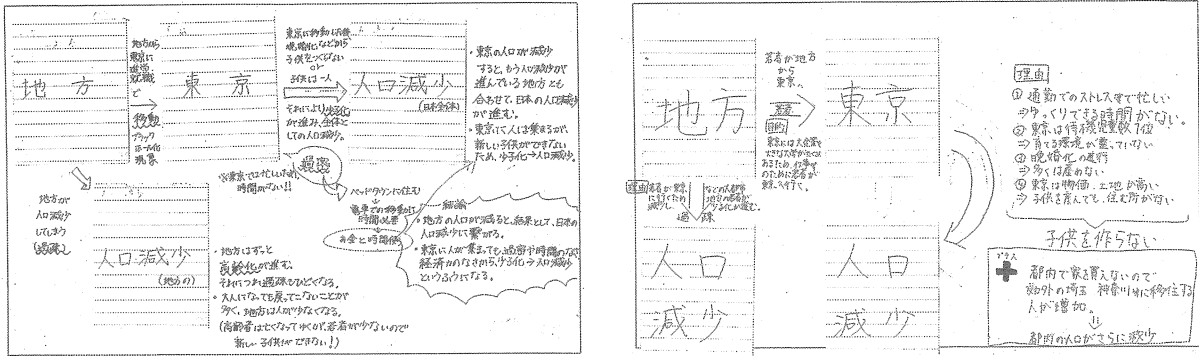 地方
地方から
東京に
進学
就職
で
移動
ブラック
ホール化
現象
東京
東京に移動した後
晩婚化などから
子供をつくらない
or
子供は一人
それにより少子化
が進み、全体と
しての人口減少。
人口減少
(日本全体)
・東京の人口が減少
すると、もう人口減少が
進んでいる地方とも
合わせて、日本の人口減少
が進む。
・東京に人は集まるが、
新しい子供ができない
ため、少子化→人口減少。
過密
※東京では忙しいため、
時間がない!!
ベッドタウンに住む
電車での移動が
時間必要
お金と時間
地方が
人口減少
してしまう
(過疎)
人口減少
(地方の)
・地方はずっと
高齢化が進む。
それにつれ過疎もひどくなる。
・大人になっても戻ってこないことが
多く、地方は人が少なくなる。
(高齢者は亡くなってゆくが、若者が少ないので
新しい子供ができない!)
結論
・地方の人口が減ると、結果として、日本の
人口減少に繋がる。
・東京に人が集まっても、過密や時間のなさ
経済力のなさから、少子化→人口減少
というふうになる。
地方
若者が地方
から
東京へ
若者
目的
東京には大企業や
大きな大学がたくさん
あるため、仕事や
のために若者が
東京へ行く。
東京
理由
若者が東京
に行くため
減少し、
などの大都市
地方の若者が
少子化が進む。
過疎
人口
減少
人口
減少
理由
① 通勤でのストレス等で忙しい
⇒ゆっくりできる時間がない。
② 東京は待機児童数1位
⇒育てる環境が整っていない
晩婚化の進行
⇒多くは産めない
東京は物価、土地が高い
⇒子供を産んでも、住む所がない
子供を作らない
プラス
都内で家を買えないので
郊外の埼玉 神奈川等に移住する
人が増加。
都内の人口がさらに減少